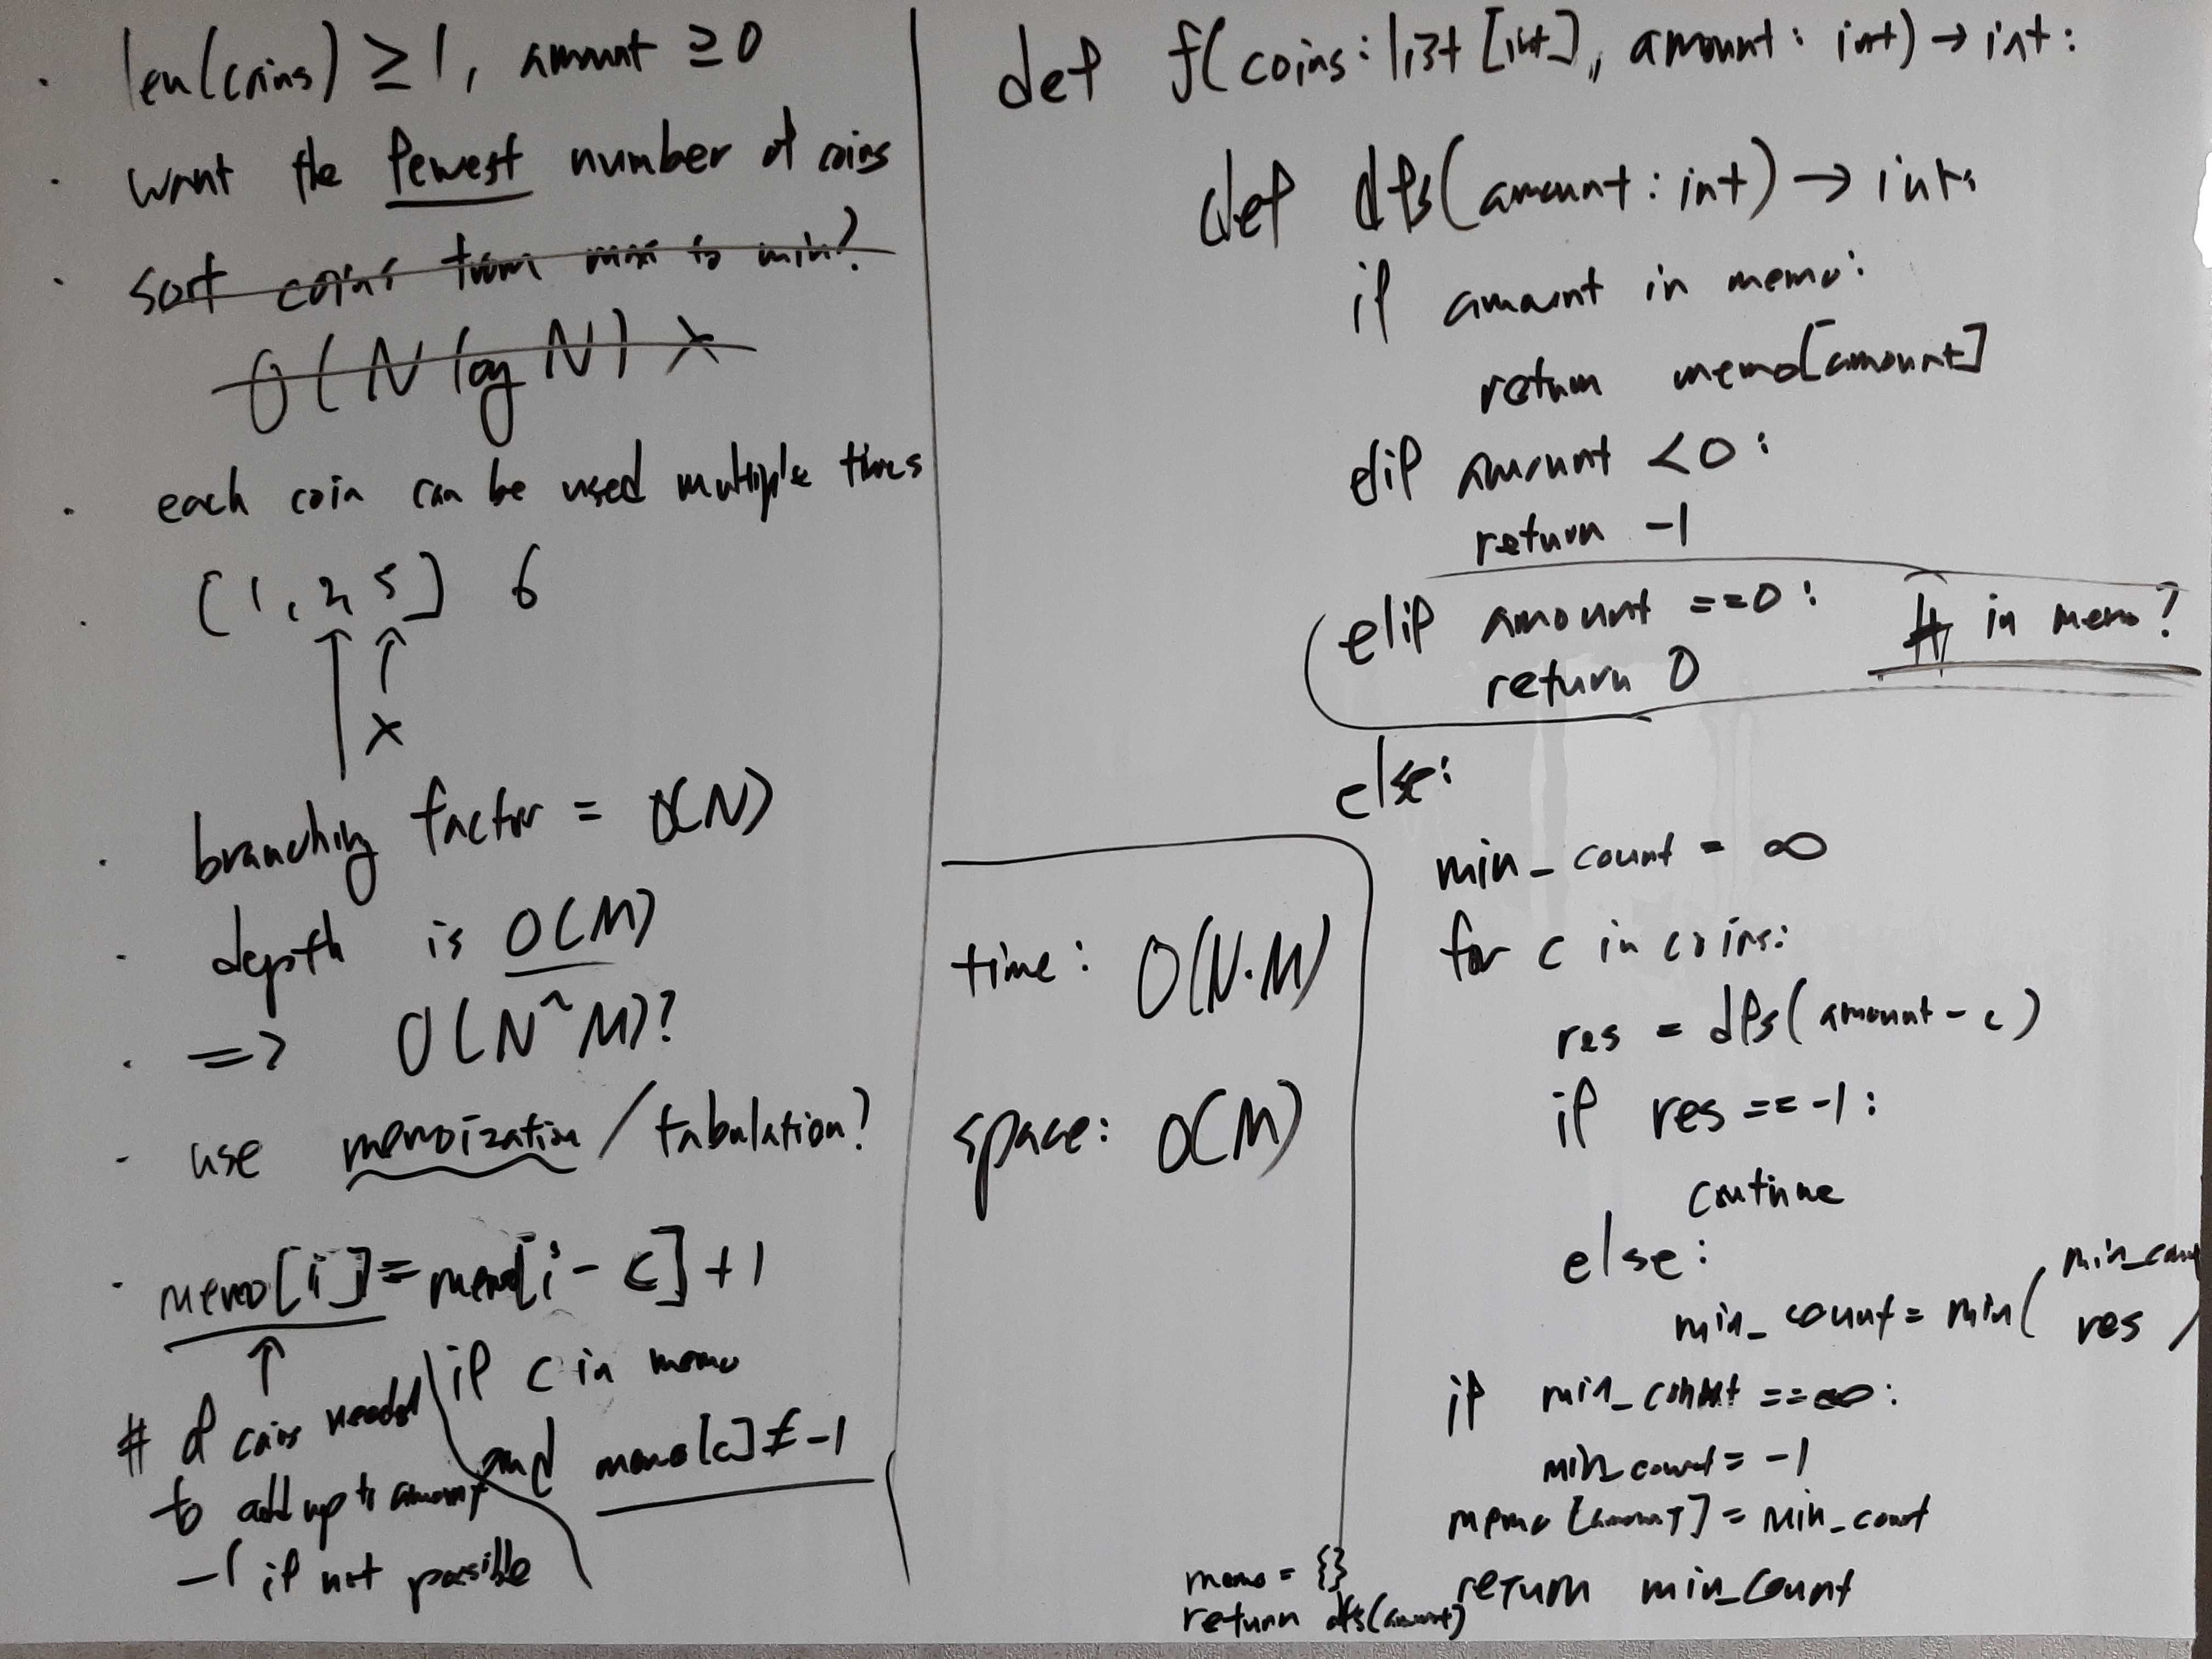 · len(coins) ≥ 1, amount ≥ 0
· want the fewest number of coins
· sort coins from max to min?
O(N log N) ×
· each coin can be used multiple times
· [1, 2, 5] 6
↑ ↑
×
· branching factor = O(N)
· depth is O(M)
· => O(N^M)?
· use memoization / tabulation?
· memo[i] = memo[i - c] + 1
↑
# of coins needed
to add up to amount
-1 if not possible
if c in memo
and memo[c] ≠ -1
time: O(N·M)
space: O(M)
def f(coins: list[int], amount: int) → int:
def dfs(amount: int) → int:
if amount in memo:
return memo[amount]
elif amount < 0:
return -1
elif amount == 0: # in memo?
return 0
else:
min_count = ∞
for c in coins:
res = dfs(amount - c)
if res == -1:
continue
else:
min_count = min( min_count
res )
if min_count == ∞:
min_count = -1
memo[amount] = min_count
return min_count
memo = {}
return dfs(amount)